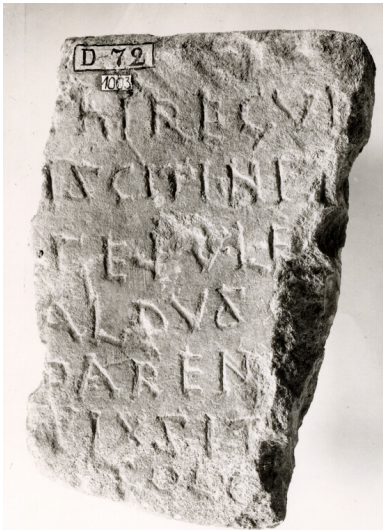 D 72
1003
HIREQVI
ISCITINPA
CEIVLE
ALDVS
PAREN
VIXSIT